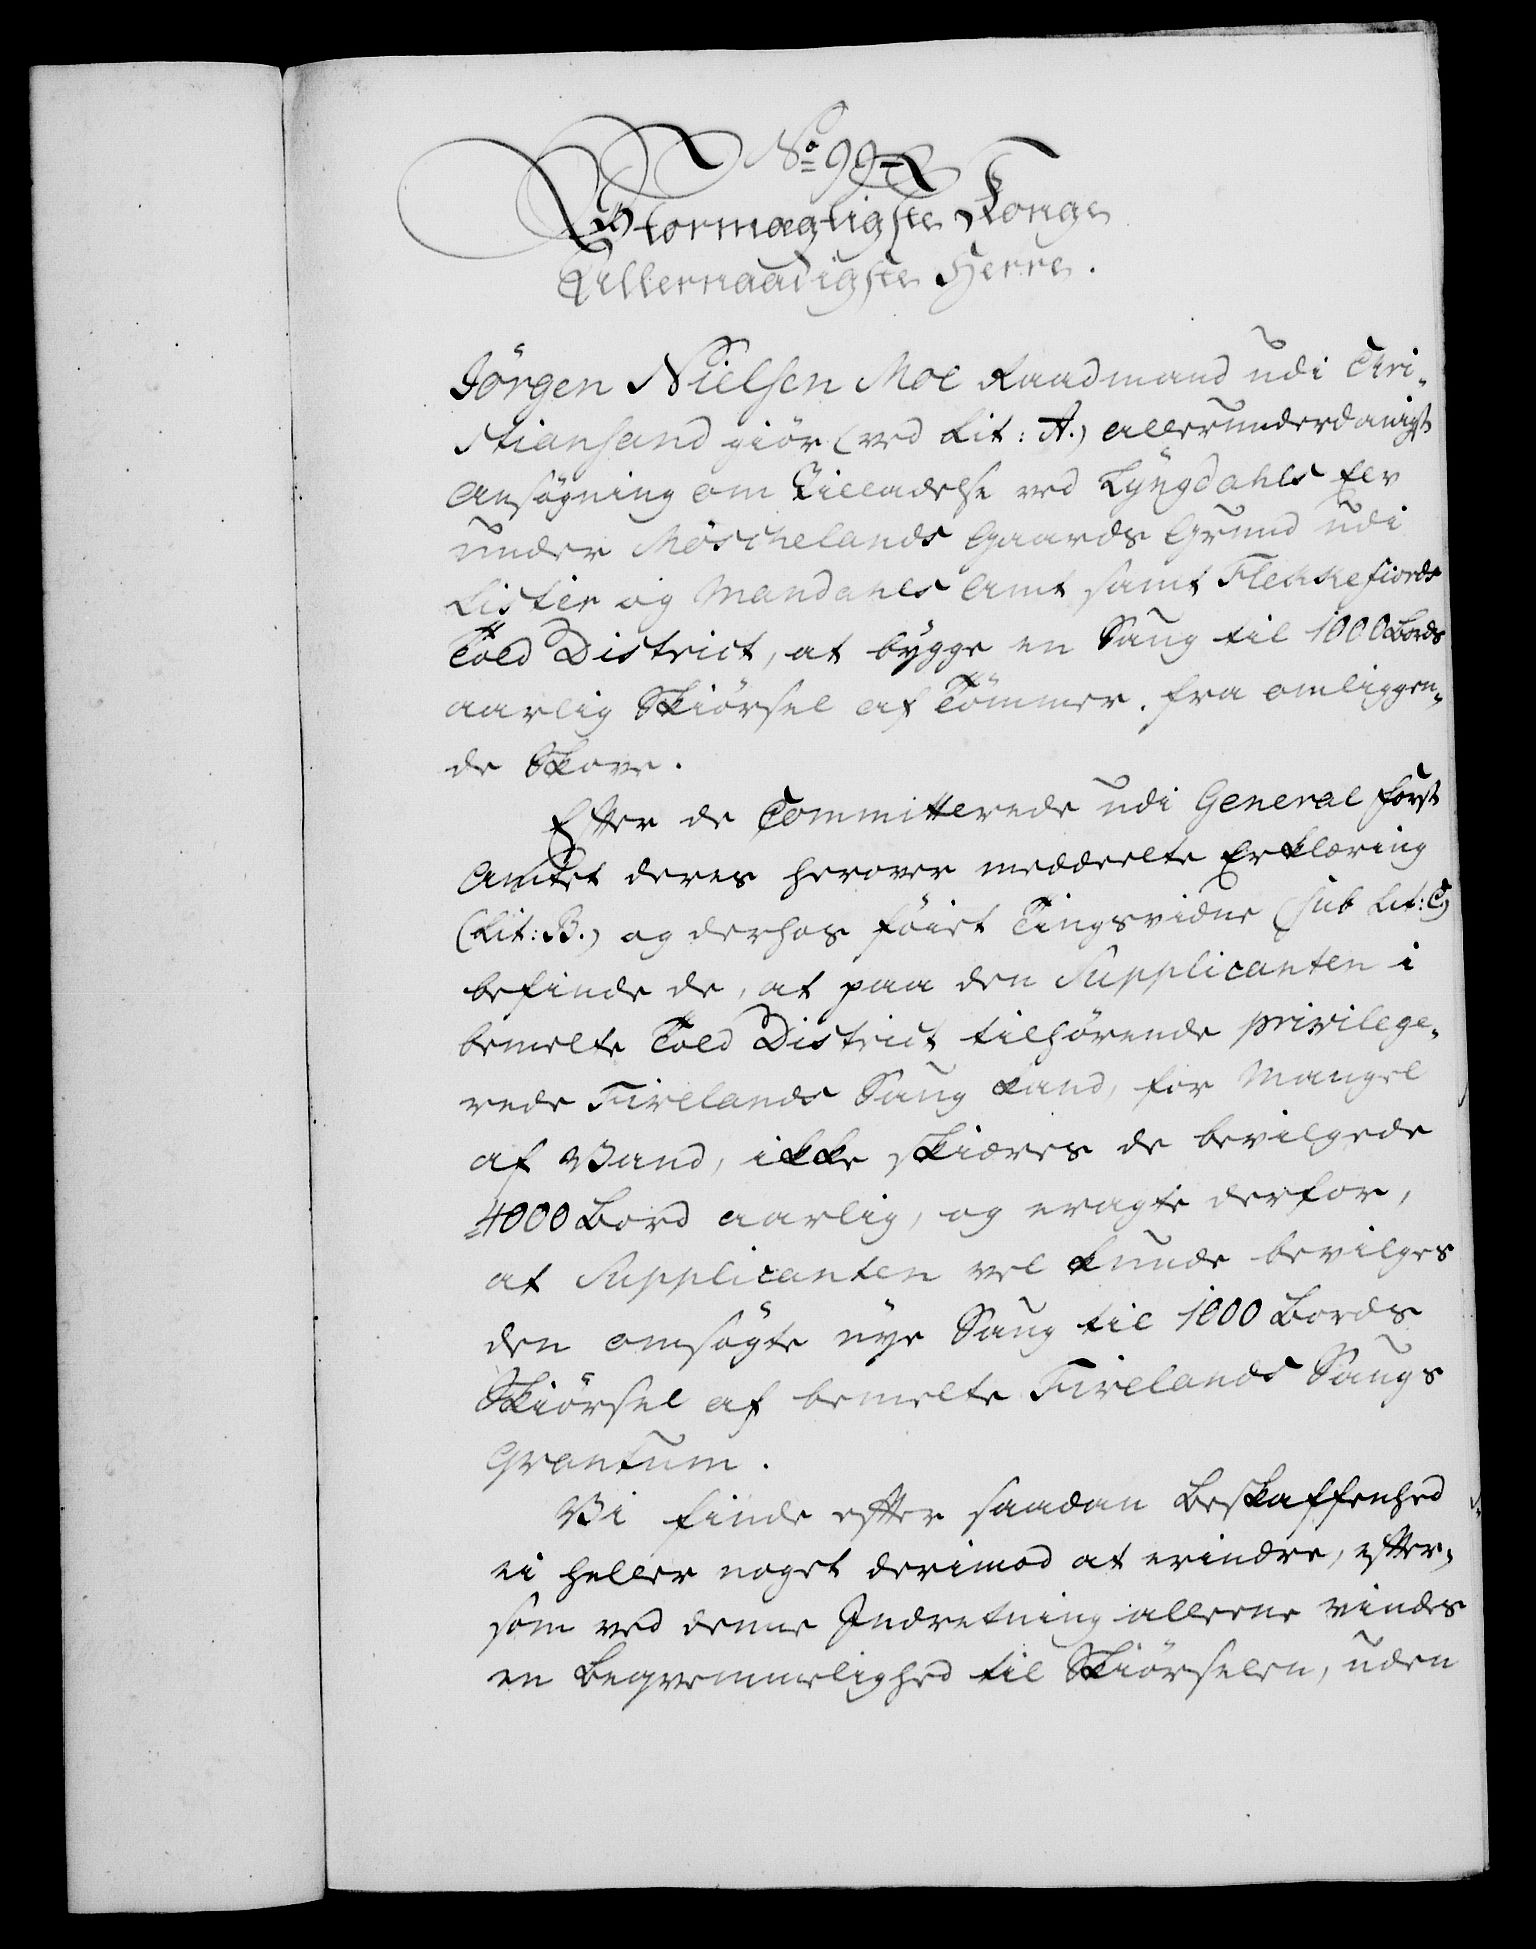 No 99
Stormægtigste Konge
Allernaadigste Herre.
Jörgen Nielsen Moe Raadmand udi Chri-
stiansand giör (ved Lit: A.) allerunderdanigst
Ansögning om Tilladelse ved Lyngdahls Elv
under Möschelands Gaards Grund udi
Lister og Mandahls Amt samt Flekkefiords
Told District, at bygge en Saug til 1000 Bords
aarlig Skiörsel af Tömmer. fra omliggen-
de Skove.
Efter de Committerede udi General Forst
Amtet deres herover meddeelte Erklæring
(Lit: B.) og derhos föiet Tingsvidne (sub Lit: C)
befinde de, at paa den Supplicanten i
bemelte Told District tilhörende privilege-
rede Firelands Saug kand, for Mangel
af Vand, ikke skiæres de bevilgede
4000 Bord aarlig, og eragte derfor,
at Supplicanten vel kunde bevilges
den omsögte nye Saug til 1000 Bords
Skiörsel af bemelte Firelands Saugs
Qvantum.
Vi finde efter saadan Beskaffenhed
ei heller noget derimod at erindre, efter-
som ved denne Indretning alleene vindes
en Beqvemmelighed til Skiörselen, uden